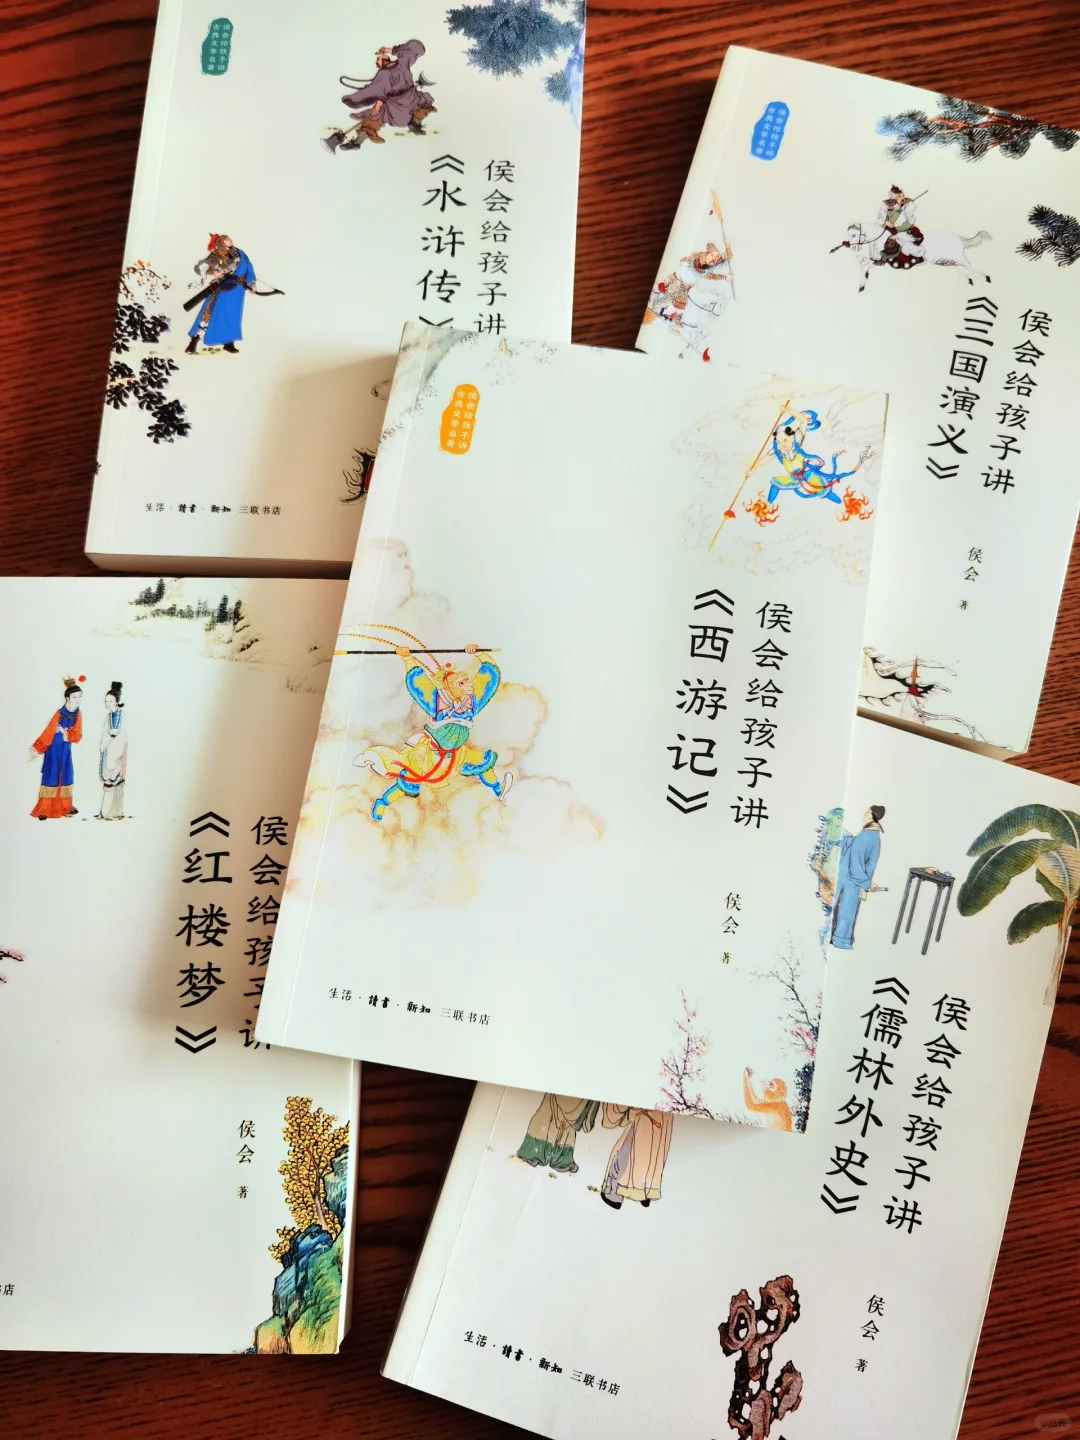 侯会给孩子讲
古典文学名著
侯会给孩子讲
《水浒传》
生活·讀書·新知 三联书店
侯会给孩子讲
古典文学名著
侯会给孩子讲
《三国演义》
侯会 著
侯会给孩子讲
古典文学名著
侯会给孩子讲
《西游记》
侯会 著
生活·讀書·新知 三联书店
侯会给孩子讲
《红楼梦》
侯会 著
书店
侯会给孩子讲
《儒林外史》
侯会 著
生活·讀書·新知 三联书店